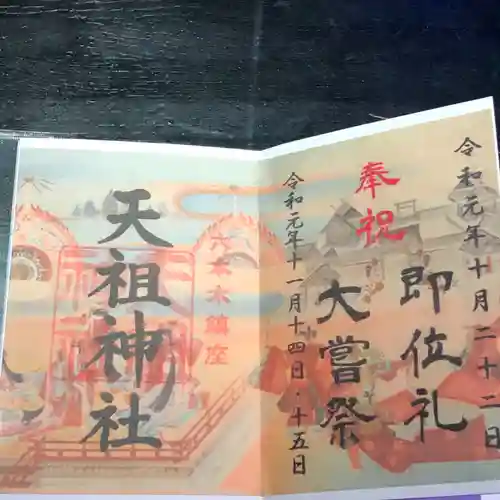 令和元年十月二十二日
奉祝
即位礼
大嘗祭
令和元年十一月十四日・十五日
六本木鎮座
天祖神社